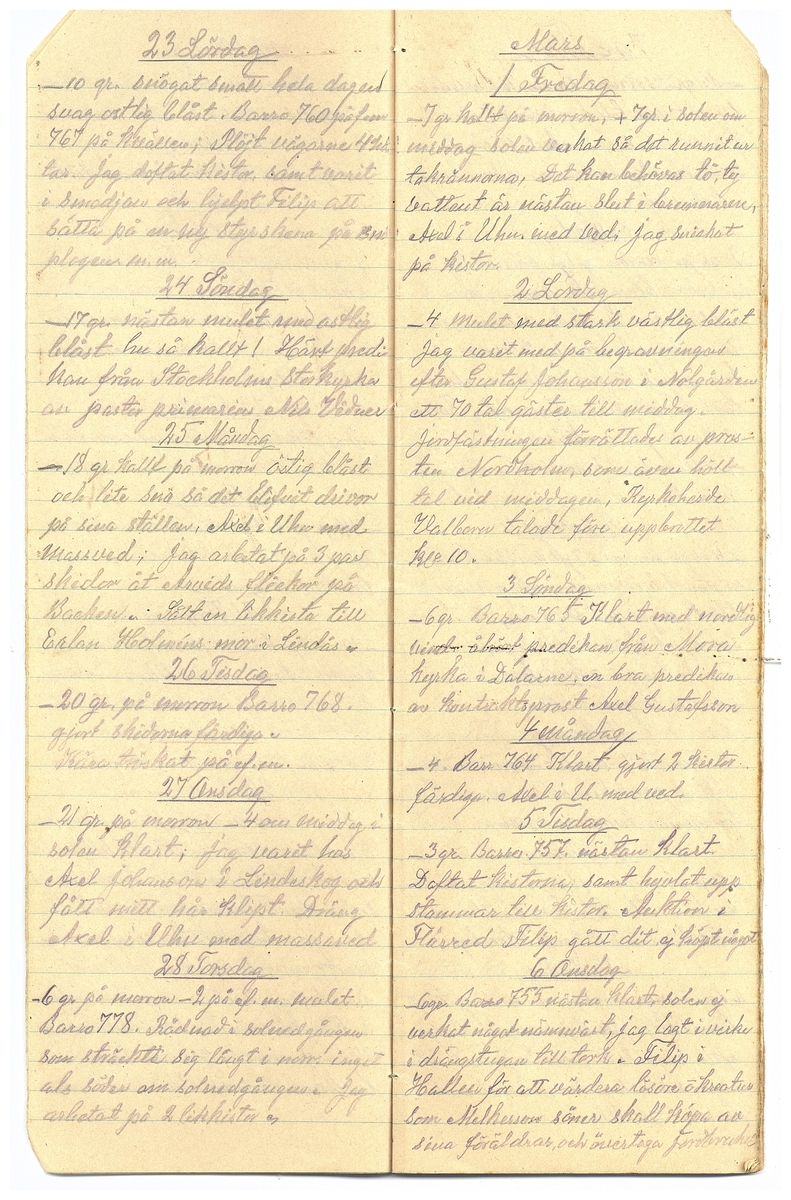 23 Lördag
—10 gr. snögat smått hela dagen
svag ostlig blåst. Barro 760 på f.m
767 på kvällen; Plöjt vägarne 4
tar. Jag doftat kistor, samt varit
i smedjan och hjelpt Filip att
sätta på en ny styrskena på snö
plogen m.m.
24 Söndag
—17 gr. nästan mulet med ostlig
blåst hu så kallt! Hört predi
kan från Stockholms Storkyrka
av pastor primarius Nils Widner
25 Måndag
—18 gr kallt på morron östlig blåst
och lite snö så det blifvit drivor
på sina ställen, Axel i Uhu med
massved; jag arbetat på 3 par
skidor åt Arvids flickor på
Backen. Sålt en likkista till
Erlan Holméns mor i Lindås.
26 Tisdag
—20 gr. på morron Barro 768.
gjort skidorna färdiga.
Kära tröskat på ef.m.
27 Onsdag
—21 gr. på morron —4 om middag i
solen klart; jag varit hos
Axel Johanson i Lindeskog och
fått mitt hår klipt. Dräng
Axel i Uhu med massaved
28 Torsdag
—6 gr på morron —2 på ef.m. mulet
Barro 778. Rådnad i solnedgången
som sträckte sig långt i norr inget
als söder om solnedgången. Jag
arbetat på 2 likkistor.
Mars
1 Fredag
—7 gr kallt på morron, +7 gr. i solen om
middag solen verkat så det runnit ur
takrännorna, Det kan behövas tö, ty
vattnet är nästan slut i brunnarne,
Axel i Uhu. med ved, jag snickat
på kistor.
2 Lördag
—4 Mulet med stark västlig blåst
Jag varit med på begravningen
efter Gustaf Johansson i Nolgården
ett 70 tal gäster till middag.
Jordfästningen förrättades av pros-
ten Nordholm, som även höll
tal vid middagen, Kyrkoherde
Valborn talade före uppbrottet
kl. 10.
3 Söndag
—6 gr. Barro 765 Klart med nordlig
vind predikan från Mora
kyrka i Dalarne, en bra predikan
av kontraktsprost Axel Gustafsson
4 Måndag
—4. Barr 764 Klart gjort 2 kistor
färdiga. Axel i U. med ved.
5 Tisdag
—3 gr. Barro 757. nästan klart.
Doftat kistorna, samt hyvlat upp
stommar till kistor. Auktion i
Flårred Filip gått dit ej köpt något
6 Onsdag
—6 gr Barro 755 nästan klart, solen ej
verkat något nämnvärt, jag lagt i virke
i drängstugan till tork. Filip i
Hallen för att värdera lösöre o kreatur
som Melkerson söner skall köpa av
sina föräldrar, och övertaga jordbruket